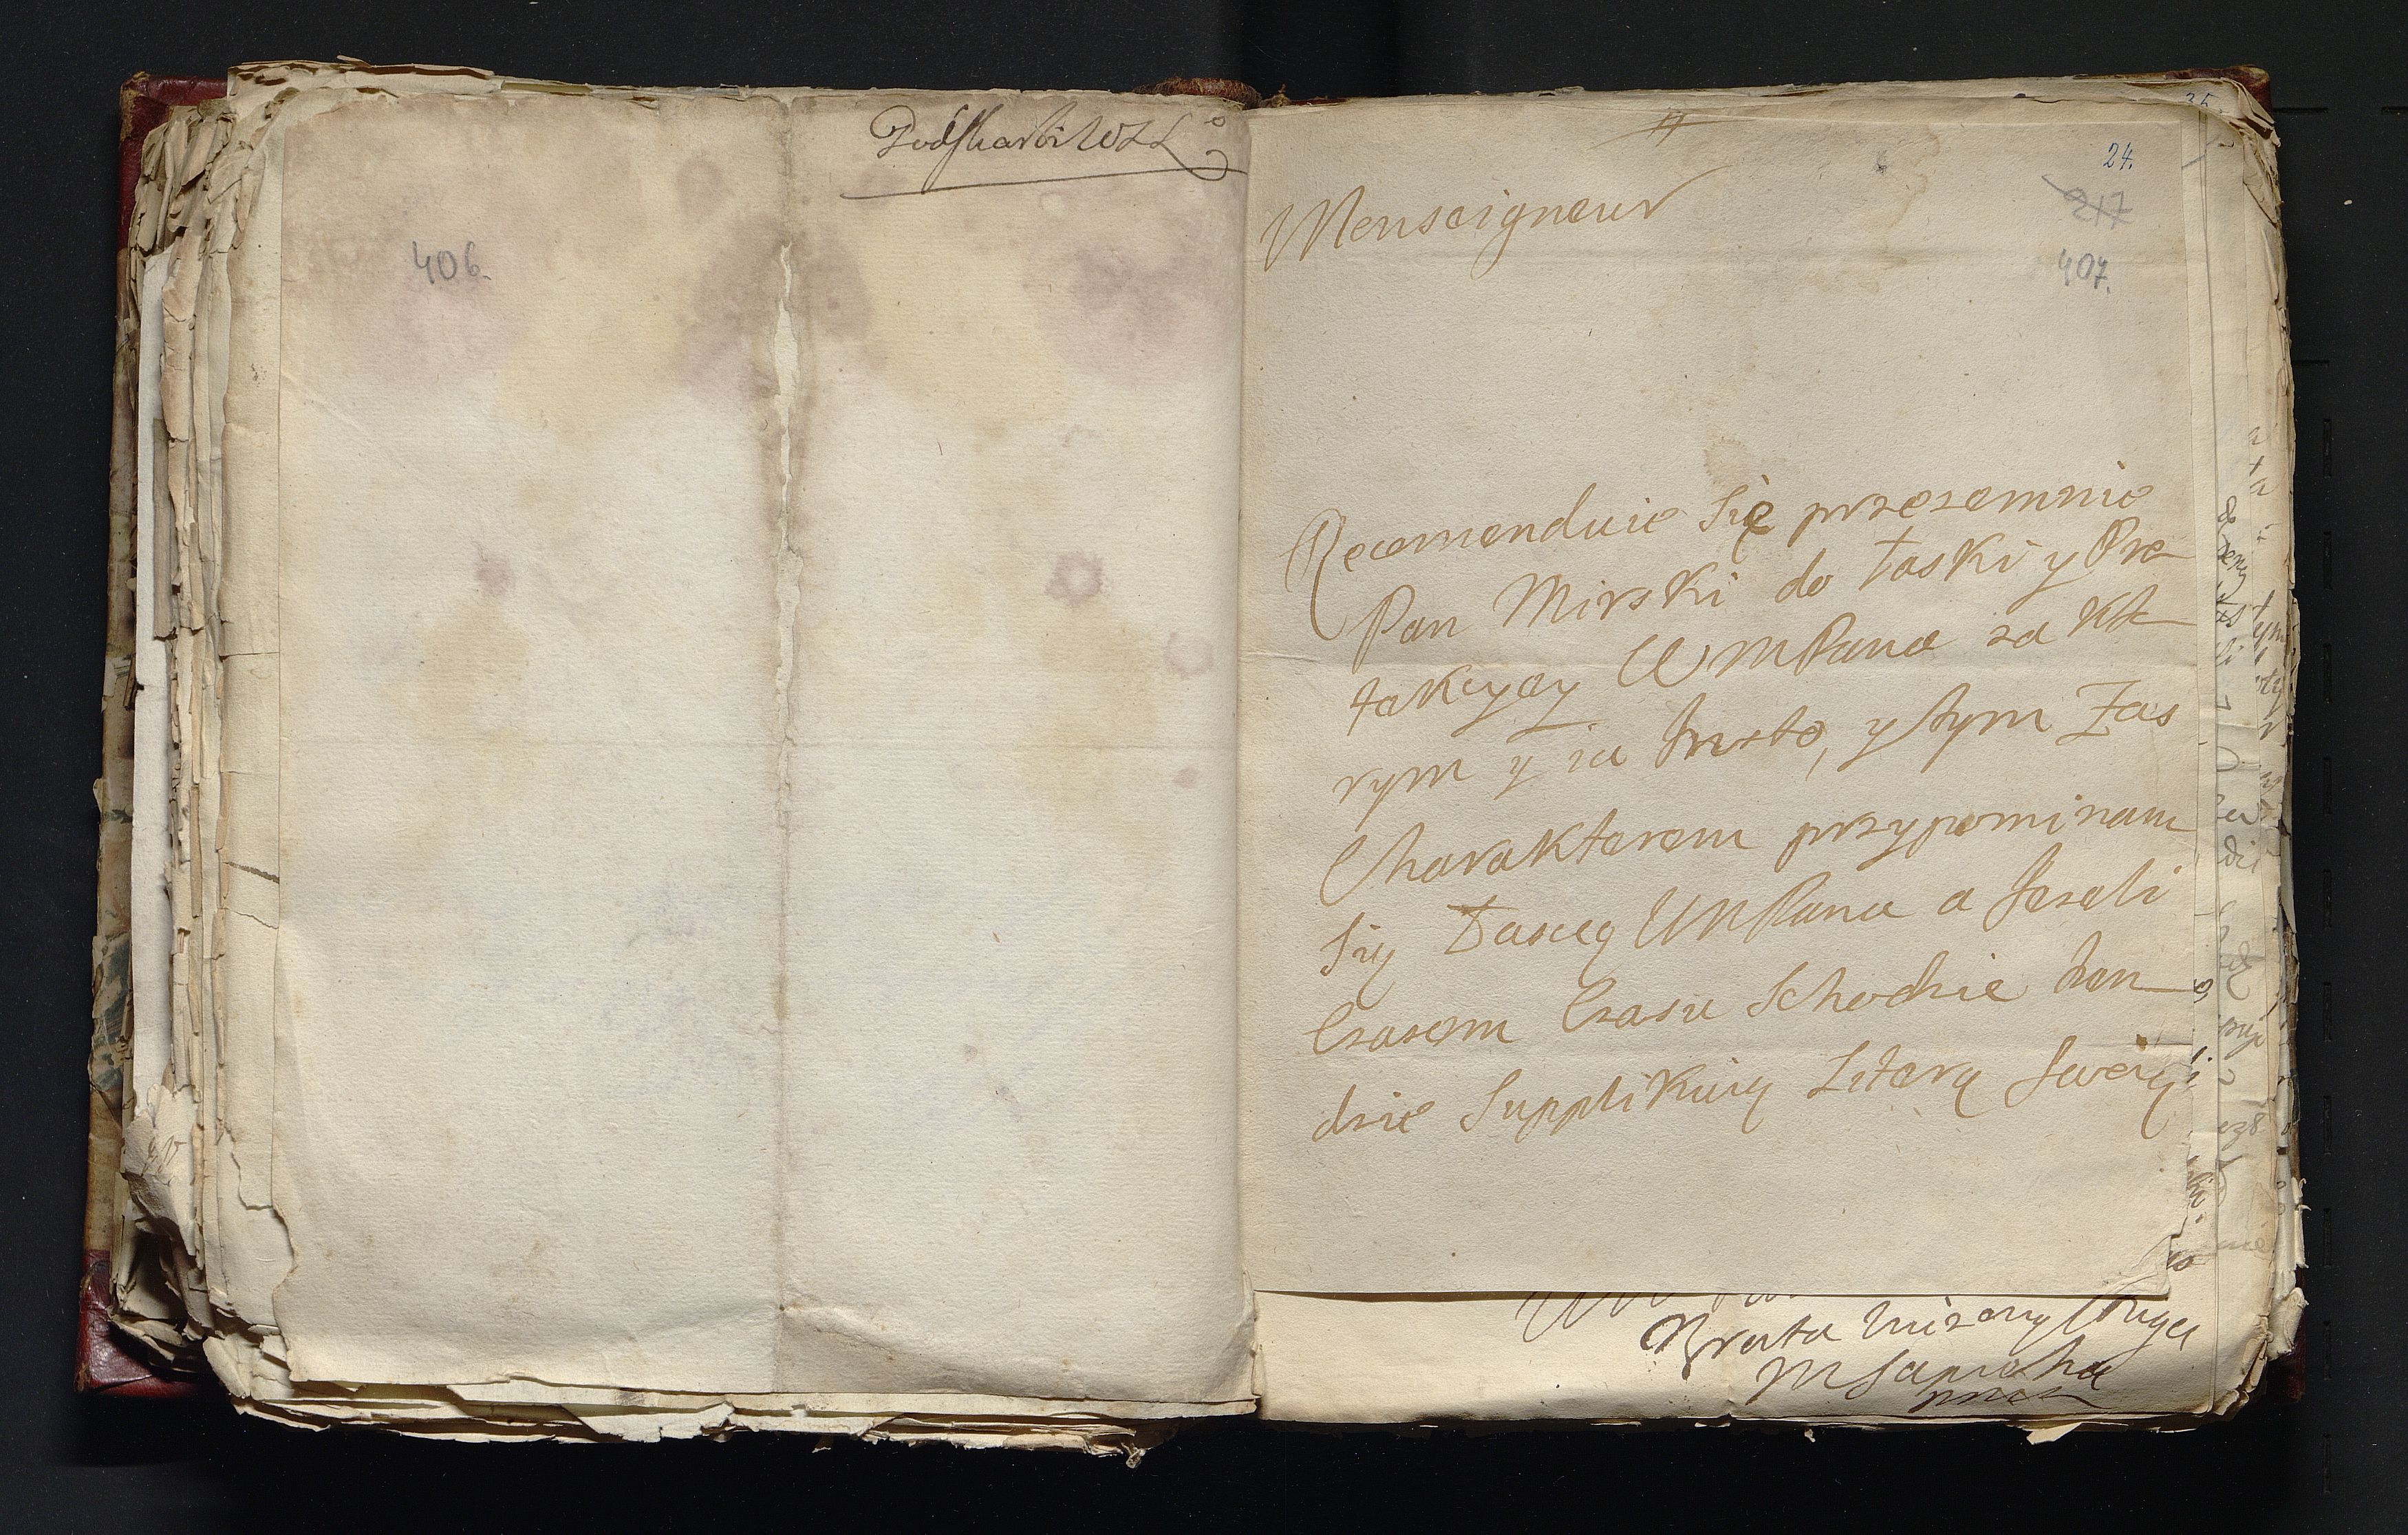 Podskarbi WXL
406.
24.
217
407.
Monseigneur
Recomenduie Się przezemnie
Pan Mirski do łaski y Pro
tekcyey WMPana za kto
rym y ia Insto, y tym Zas
Charakterem przypominam
Się Łascey WMPana a Jezeli
Czasem Czasu Schodzie ban
dzie Supplikuię Literą Swoią
Brata Unizony Sługa
M Sapieha